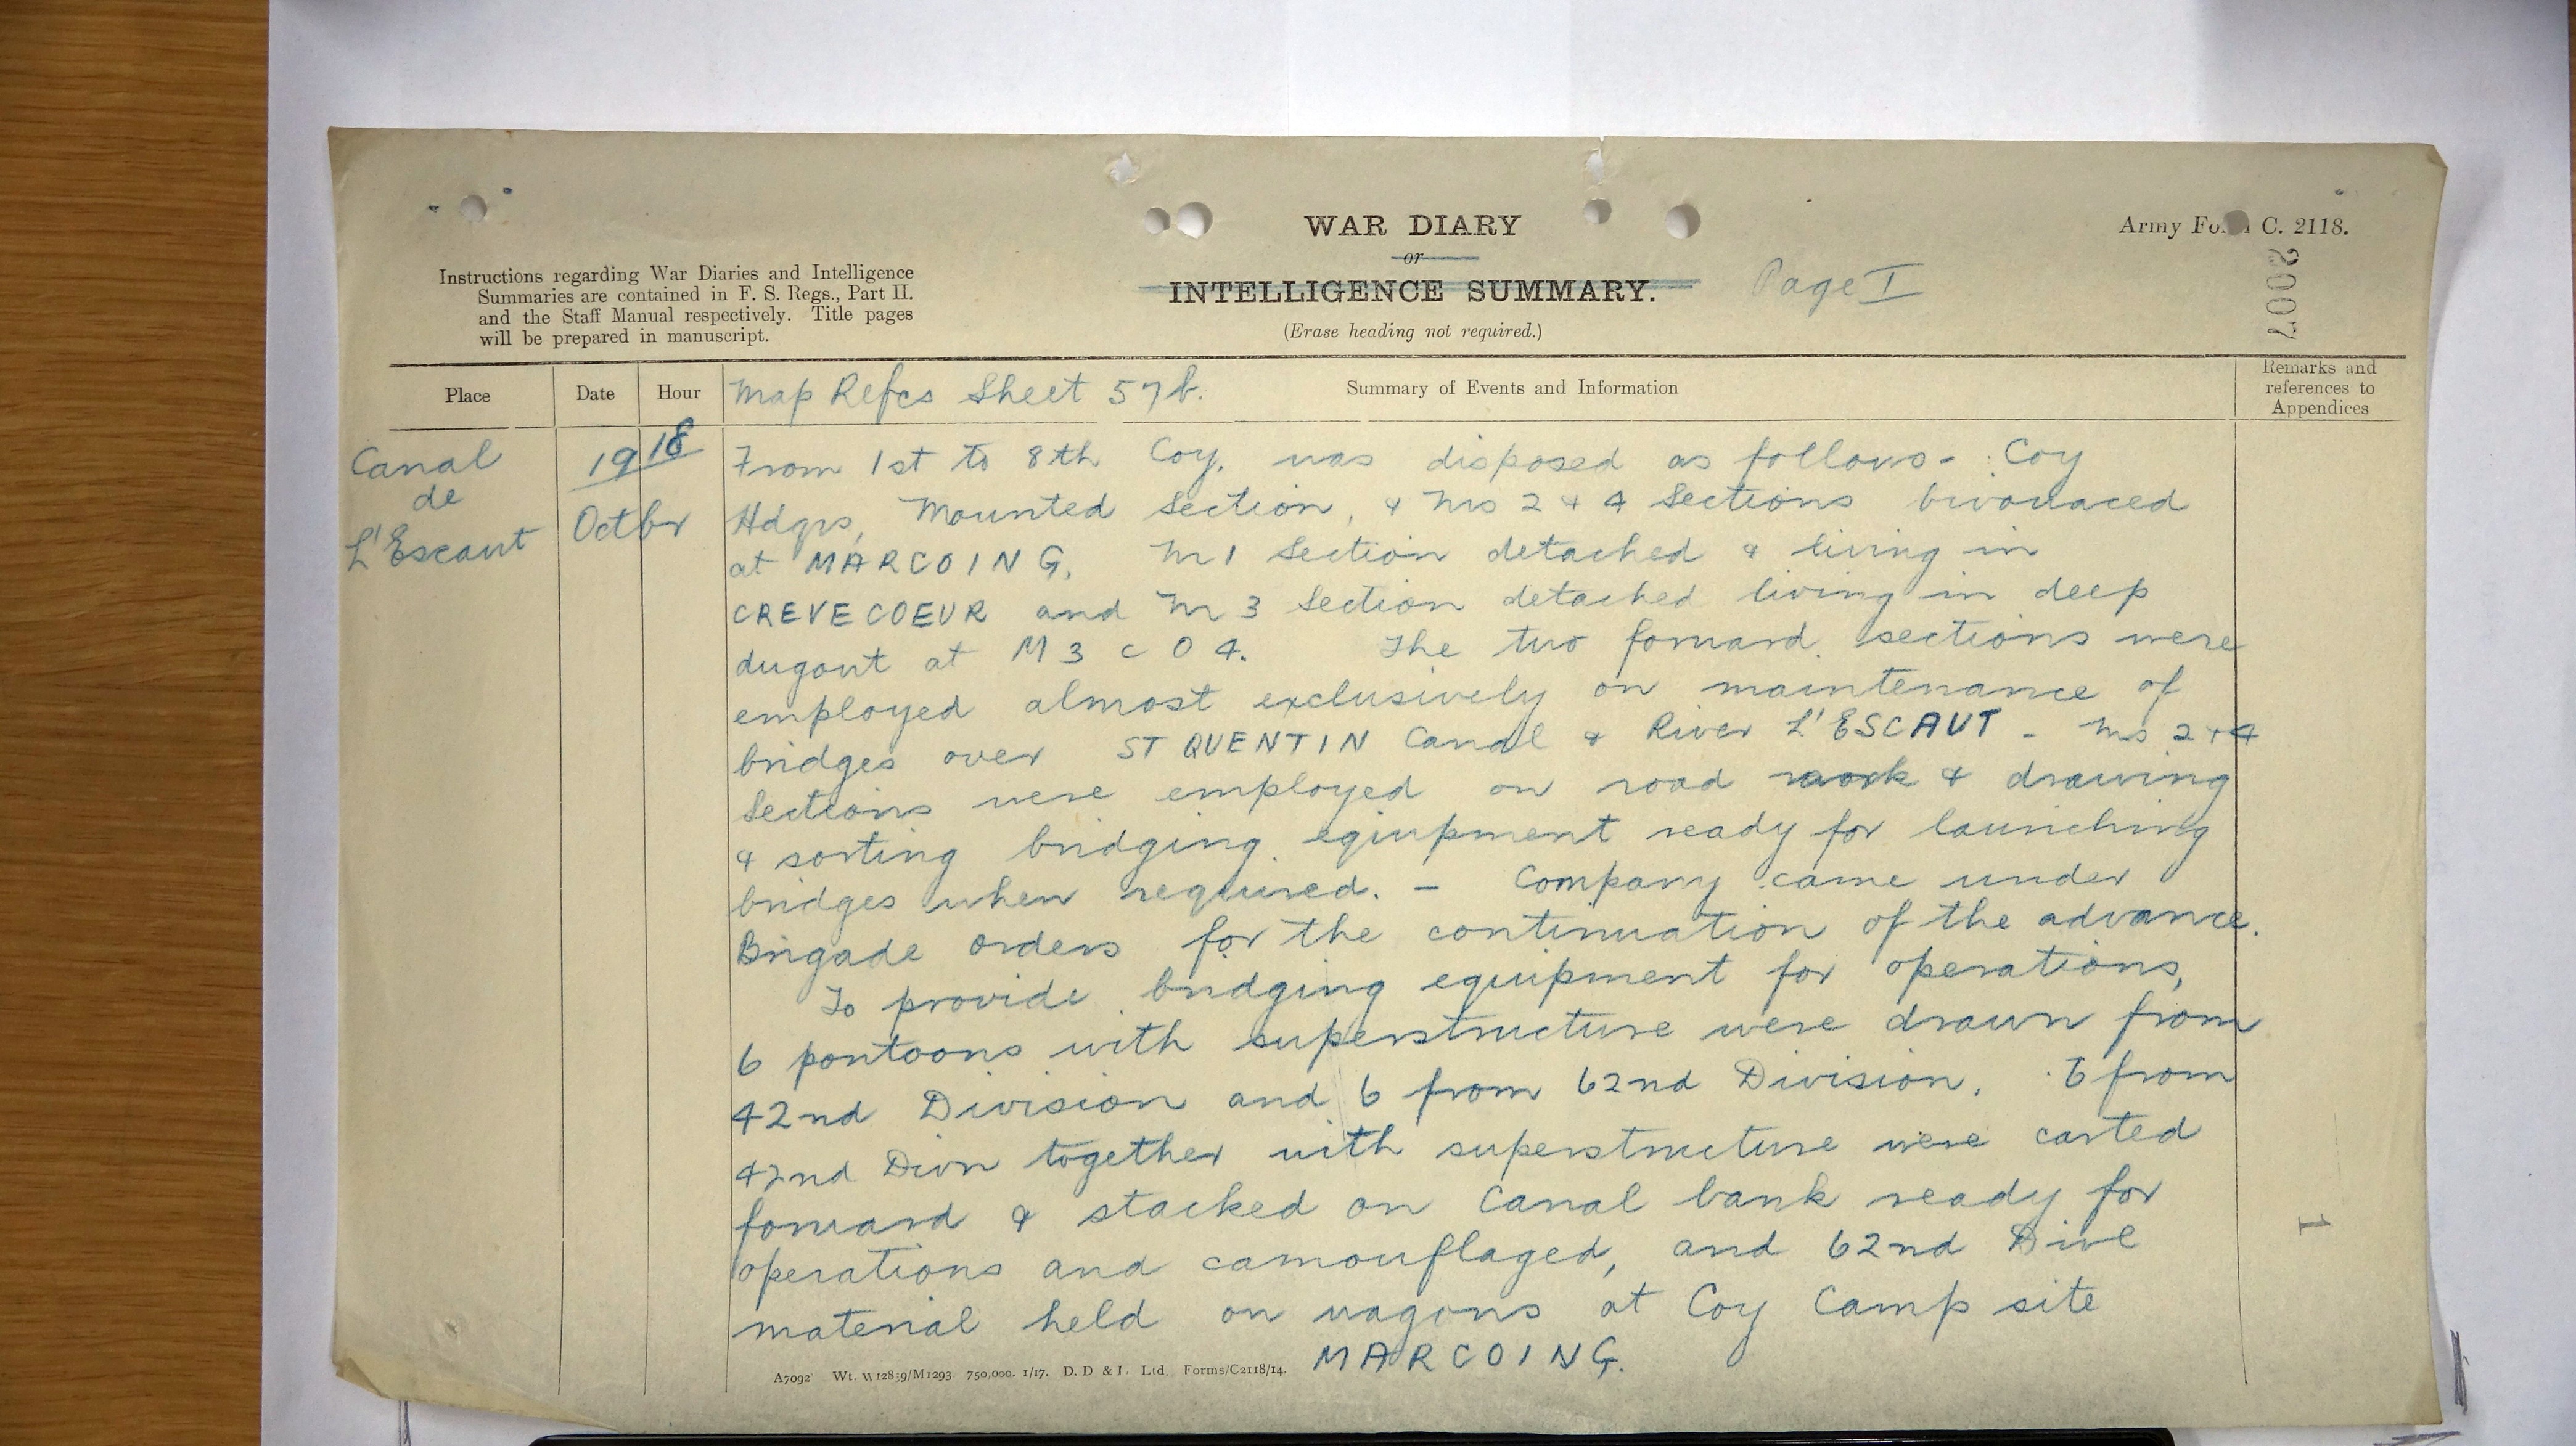 WAR DIARY
or
INTELLIGENCE SUMMARY.
(Erase heading not required.)
Page I
Army Form C. 2118.
2007
Instructions regarding War Diaries and Intelligence
Summaries are contained in F. S. Regs., Part II.
and the Staff Manual respectively. Title pages
will be prepared in manuscript.
Place Date Hour Map Refcs Sheet 57b. Summary of Events and Information Remarks and
references to
Appendices
Canal
de
L'Escaut
1918
Octbr
From 1st to 8th Coy. was disposed as follows - : Coy
Hdqrs, Mounted Section, & Nos 2 & 4 Sections bivouaced
at MARCOING. No 1 Section detached & living in
CREVECOEUR and No 3 Section detached living in deep
dugout at M 3 c 0 4. The two forward sections were
employed almost exclusively on maintenance of
bridges over ST QUENTIN Canal & River L'ESCAUT - Nos 2 & 4
Sections were employed on road work & drawing
& sorting bridging equipment ready for launching
bridges when required. - Company came under
Brigade orders for the continuation of the advance.
To provide bridging equipment for operations,
6 pontoons with superstructure were drawn from
42nd Division and 6 from 62nd Division. 6 from
42nd Divn together with superstructure were carted
forward & stacked on Canal bank ready for
operations and camouflaged, and 62nd Divl
material held on wagons at Coy Camp site
MARCOING.
A7092 Wt. W12859/M1293 750,000. 1/17. D. D & L. Ltd. Forms/C2118/14.
1